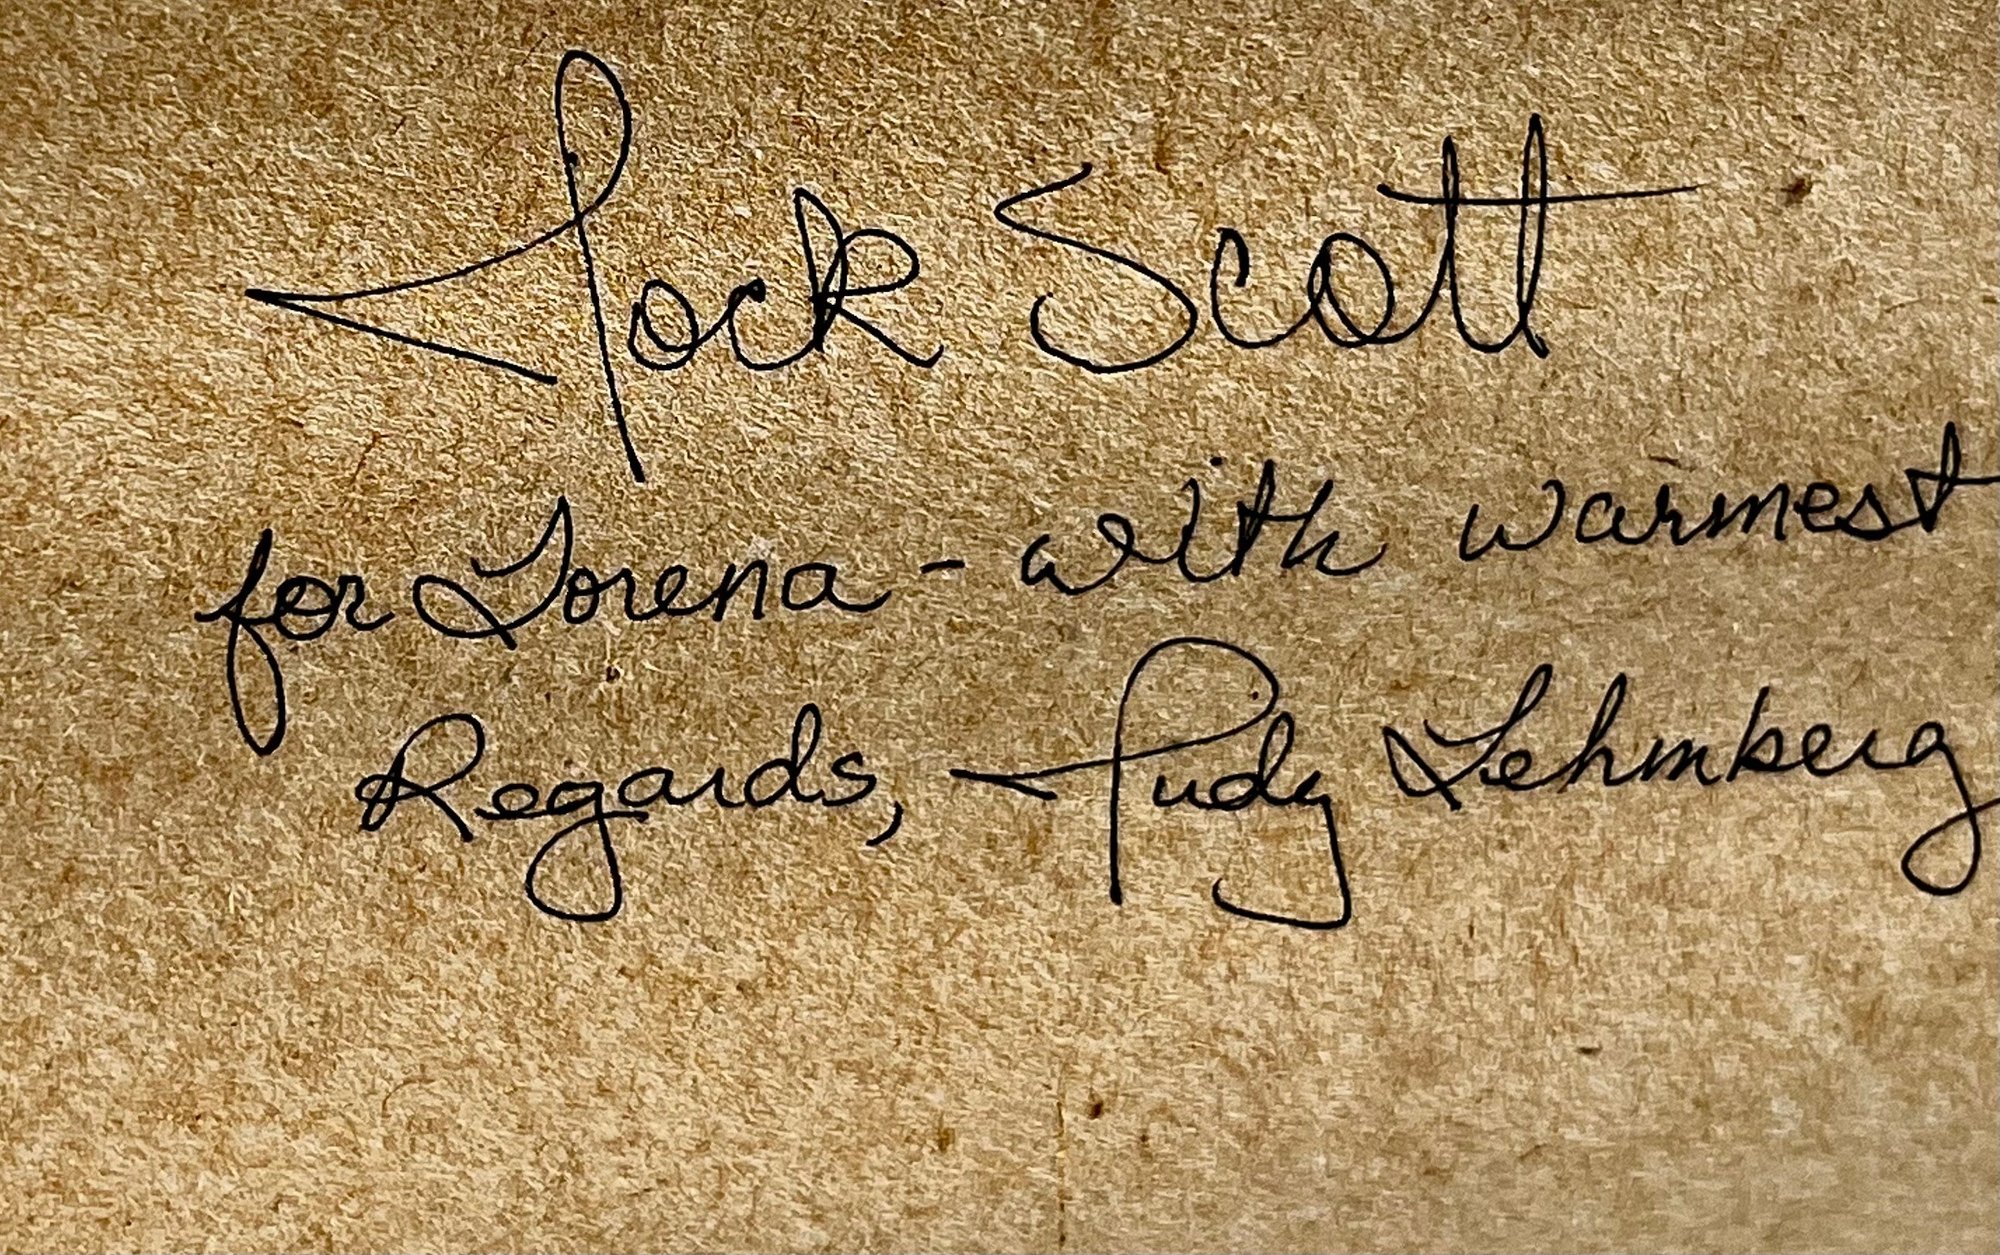 Jock Scott
for Lorena - with warmest
Regards, Judy Lehmberg